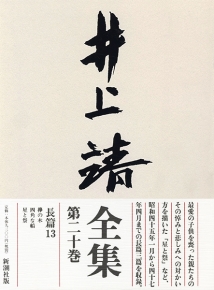 井上靖
最愛の子供を喪った親たちの
その悼みと悲しみへの対かい
方を描いた「星と祭」など、
昭和四十五年一月から四十七
年四月までの長篇三篇を収録。
全集
第二十巻
長篇13
欅の木
四角な船
星と祭
新潮社版